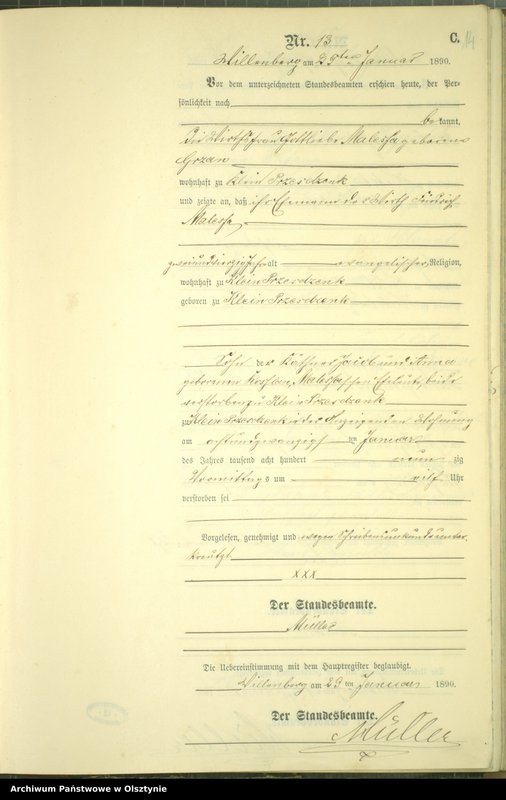 Nr. 13
C. 14
Willenberg am 29ten Januar 1890.
Vor dem unterzeichneten Standesbeamten erschien heute, der Per-
sönlichkeit nach
bekannt,
die Wirthsfrau Gottliebe Malessa geborene
Grzan
wohnhaft zu Klein Przesdzenk
und zeigte an, daß ihr Ehemann der Wirth Friedrich
Malessa
zweiundvierzig Jahr alt evangelischer Religion,
wohnhaft zu Klein Przesdzenk
geboren zu Klein Przesdzenk
Sohn der Käthner Jacob und Anna
geborenen Malessaschen Eheleute, beide
verstorben zu Klein Przesdzenk
zu Klein Przesdzenk in der Anzeigenden Wohnung
am achtundzwanzigsten Januar
des Jahres tausend acht hundert neun zig
Vormittags um elf Uhr
verstorben sei
Vorgelesen, genehmigt und wegen Schreibensunkunde unter
kreuzt
xxx
Der Standesbeamte.
Müller
Die Uebereinstimmung mit dem Hauptregister beglaubigt.
Willenberg am 29 ten Januar 1890.
Der Standesbeamte.
Müller
Archiwum Państwowe w Olsztynie